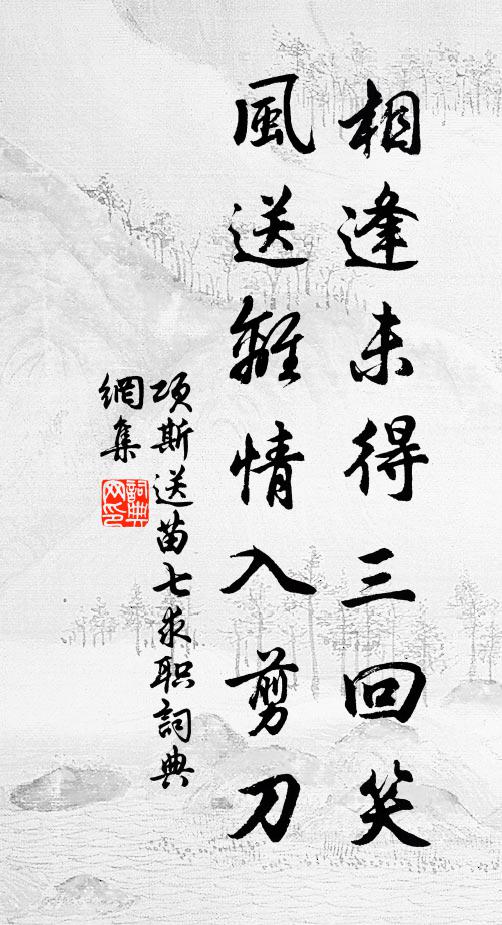 相逢未得三回笑
風送離情入剪刀
項斯送苗七求职詞典
網集
詞典
网印